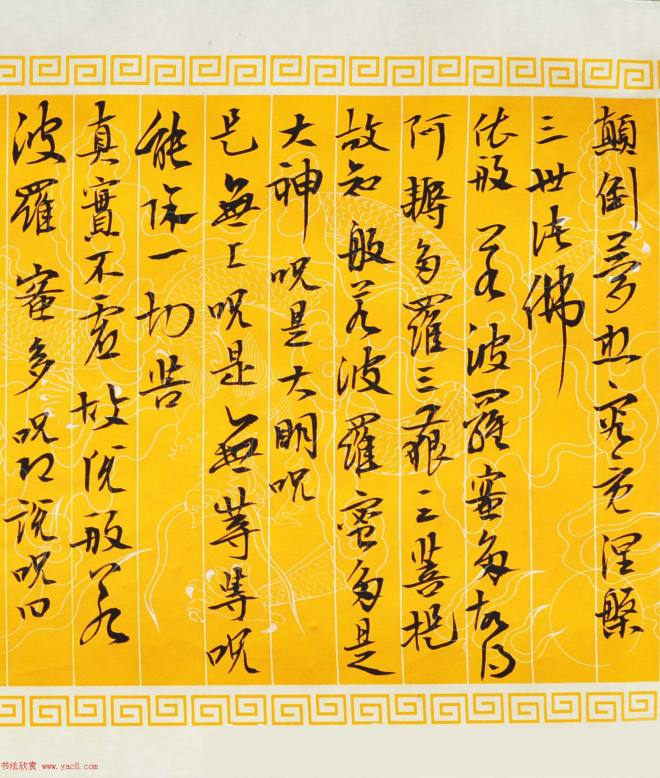 顛倒夢想究竟涅槃
三世諸佛
依般若波羅蜜多故得
阿耨多羅三藐三菩提
故知般若波羅蜜多是
大神呪是大明呪
是無上呪是無等等呪
能除一切苦
真實不虛故說般若
波羅蜜多呪即說呪曰
书法欣赏 www.yac8.com